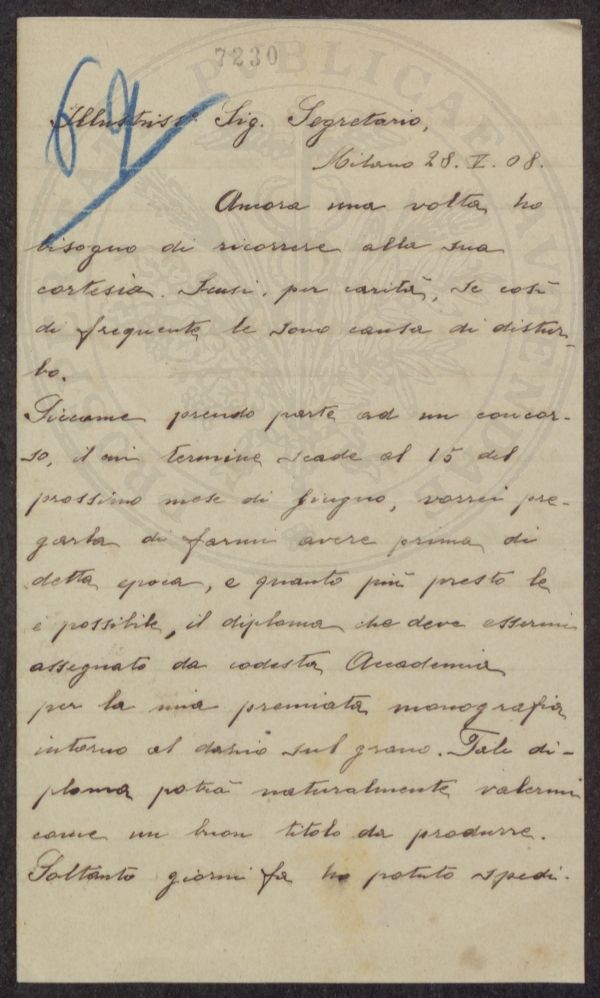 7230
69
Illustriss. Sig. Segretario,
Milano 28. V. 08.
Ancora una volta ho
bisogno di ricorrere alla sua
cortesia. Scusi, per carità, se così
di frequente le sono causa di distur-
bo.
Siccome prendo parte ad un concor-
so, il cui termine scade al 15 del
prossimo mese di Giugno, vorrei pre-
garla di farmi avere prima di
detta epoca, e quanto più presto le
è possibile, il diploma che deve essermi
assegnato da codesta Accademia
per la mia premiata monografia
intorno al dazio sul grano. Tale di-
ploma potrà naturalmente valermi
come un buon titolo da produrre.
Soltanto giorni fa ho potuto spedi-